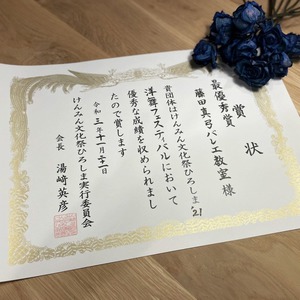 賞状
最優秀賞
藤田真弓バレエ教室 様
貴団体はけんみん文化祭ひろしま'21
洋舞フェスティバルにおいて
優秀な成績を収められまし
たので賞します
令和三年十一月二十一日
けんみん文化祭ひろしま実行委員会
会長 湯﨑英彦